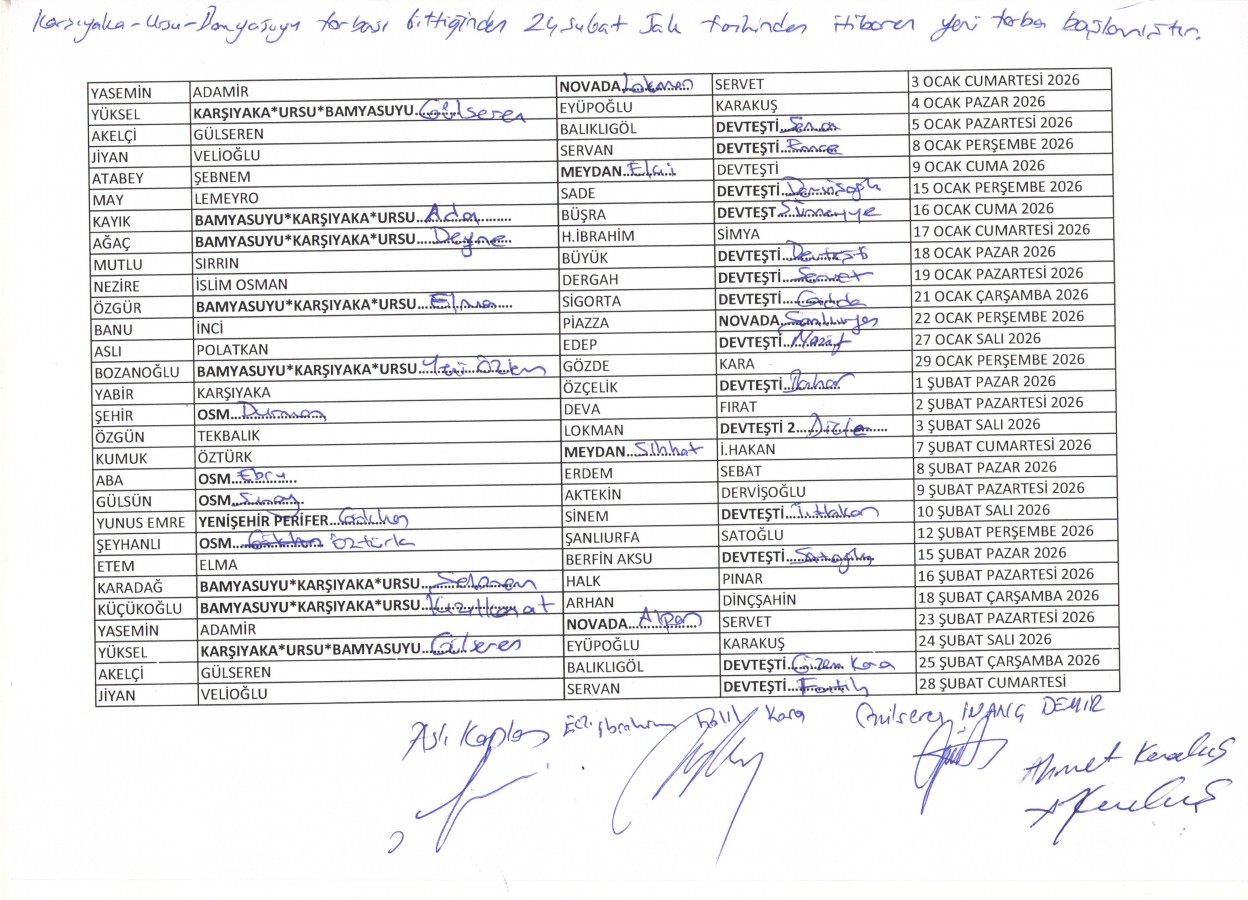 Karşıyaka-Ursu-Bamyasuyu torbası bittiğinden 24 Şubat Salı tarihinden itibaren yeni torba başlamıştır.
YASEMİN ADAMİR NOVADA..Lokman SERVET 3 OCAK CUMARTESİ 2026
YÜKSEL KARŞIYAKA*URSU*BAMYASUYU..Gülseren EYÜPOĞLU KARAKUŞ 4 OCAK PAZAR 2026
AKELÇİ GÜLSEREN BALIKLIGÖL DEVTEŞTİ.. 5 OCAK PAZARTESİ 2026
JİYAN VELİOĞLU SERVAN DEVTEŞTİ.. 8 OCAK PERŞEMBE 2026
ATABEY ŞEBNEM MEYDAN..Elçi DEVTEŞTİ 9 OCAK CUMA 2026
MAY LEMEYRO SADE DEVTEŞTİ..Dervişoğlu 15 OCAK PERŞEMBE 2026
KAYIK BAMYASUYU*KARŞIYAKA*URSU...Ada BÜŞRA DEVTEŞT..Sümeyye 16 OCAK CUMA 2026
AĞAÇ BAMYASUYU*KARŞIYAKA*URSU... H.İBRAHİM SİMYA 17 OCAK CUMARTESİ 2026
MUTLU SIRRIN BÜYÜK DEVTEŞTİ..Devteşti 18 OCAK PAZAR 2026
NEZİRE İSLİM OSMAN DERGAH DEVTEŞTİ..Servet 19 OCAK PAZARTESİ 2026
ÖZGÜR BAMYASUYU*KARŞIYAKA*URSU...Elma SİGORTA DEVTEŞTİ.. 21 OCAK ÇARŞAMBA 2026
BANU İNCİ PİAZZA NOVADA..Şanlıurfa 22 OCAK PERŞEMBE 2026
ASLI POLATKAN EDEP DEVTEŞTİ.. 27 OCAK SALI 2026
BOZANOĞLU BAMYASUYU*KARŞIYAKA*URSU..Yeni Özlem GÖZDE KARA 29 OCAK PERŞEMBE 2026
YABİR KARŞIYAKA ÖZÇELİK DEVTEŞTİ..Bahar 1 ŞUBAT PAZAR 2026
ŞEHİR OSM..Duman DEVA FIRAT 2 ŞUBAT PAZARTESİ 2026
ÖZGÜN TEKBALIK LOKMAN DEVTEŞTİ 2..Dicle 3 ŞUBAT SALI 2026
KUMUK ÖZTÜRK MEYDAN..Sıhhat İ.HAKAN 7 ŞUBAT CUMARTESİ 2026
ABA OSM..Ebru ERDEM SEBAT 8 ŞUBAT PAZAR 2026
GÜLSÜN OSM..Simay AKTEKİN DERVİŞOĞLU 9 ŞUBAT PAZARTESİ 2026
YUNUS EMRE YENİŞEHİR PERİFER..Gökhan SİNEM DEVTEŞTİ..İ.Hakan 10 ŞUBAT SALI 2026
ŞEYHANLI OSM.. Öztürk ŞANLIURFA SATOĞLU 12 ŞUBAT PERŞEMBE 2026
ETEM ELMA BERFİN AKSU DEVTEŞTİ..Satoğlu 15 ŞUBAT PAZAR 2026
KARADAĞ BAMYASUYU*KARŞIYAKA*URSU.. HALK PINAR 16 ŞUBAT PAZARTESİ 2026
KÜÇÜKOĞLU BAMYASUYU*KARŞIYAKA*URSU.. ARHAN DİNÇŞAHİN 18 ŞUBAT ÇARŞAMBA 2026
YASEMİN ADAMİR NOVADA..Alpan SERVET 23 ŞUBAT PAZARTESİ 2026
YÜKSEL KARŞIYAKA*URSU*BAMYASUYU..Gülseren EYÜPOĞLU KARAKUŞ 24 ŞUBAT SALI 2026
AKELÇİ GÜLSEREN BALIKLIGÖL DEVTEŞTİ..Gizem Kara 25 ŞUBAT ÇARŞAMBA 2026
JİYAN VELİOĞLU SERVAN DEVTEŞTİ..Fatih 28 ŞUBAT CUMARTESİ
Aslı Kaplan Ecz. İbrahim Halil Kara Gülseren İNANÇ DEMİR
Ahmet Karakuş